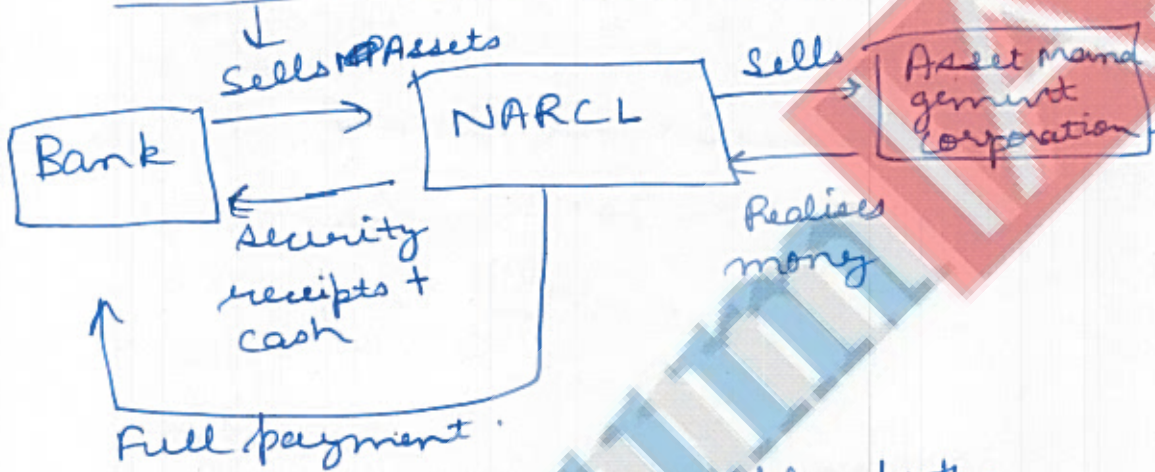 Sells NPAssets
Bank
NARCL
Sells
Asset mana
gement
corporation
security
receipts +
cash
Realises
money
Full payment.